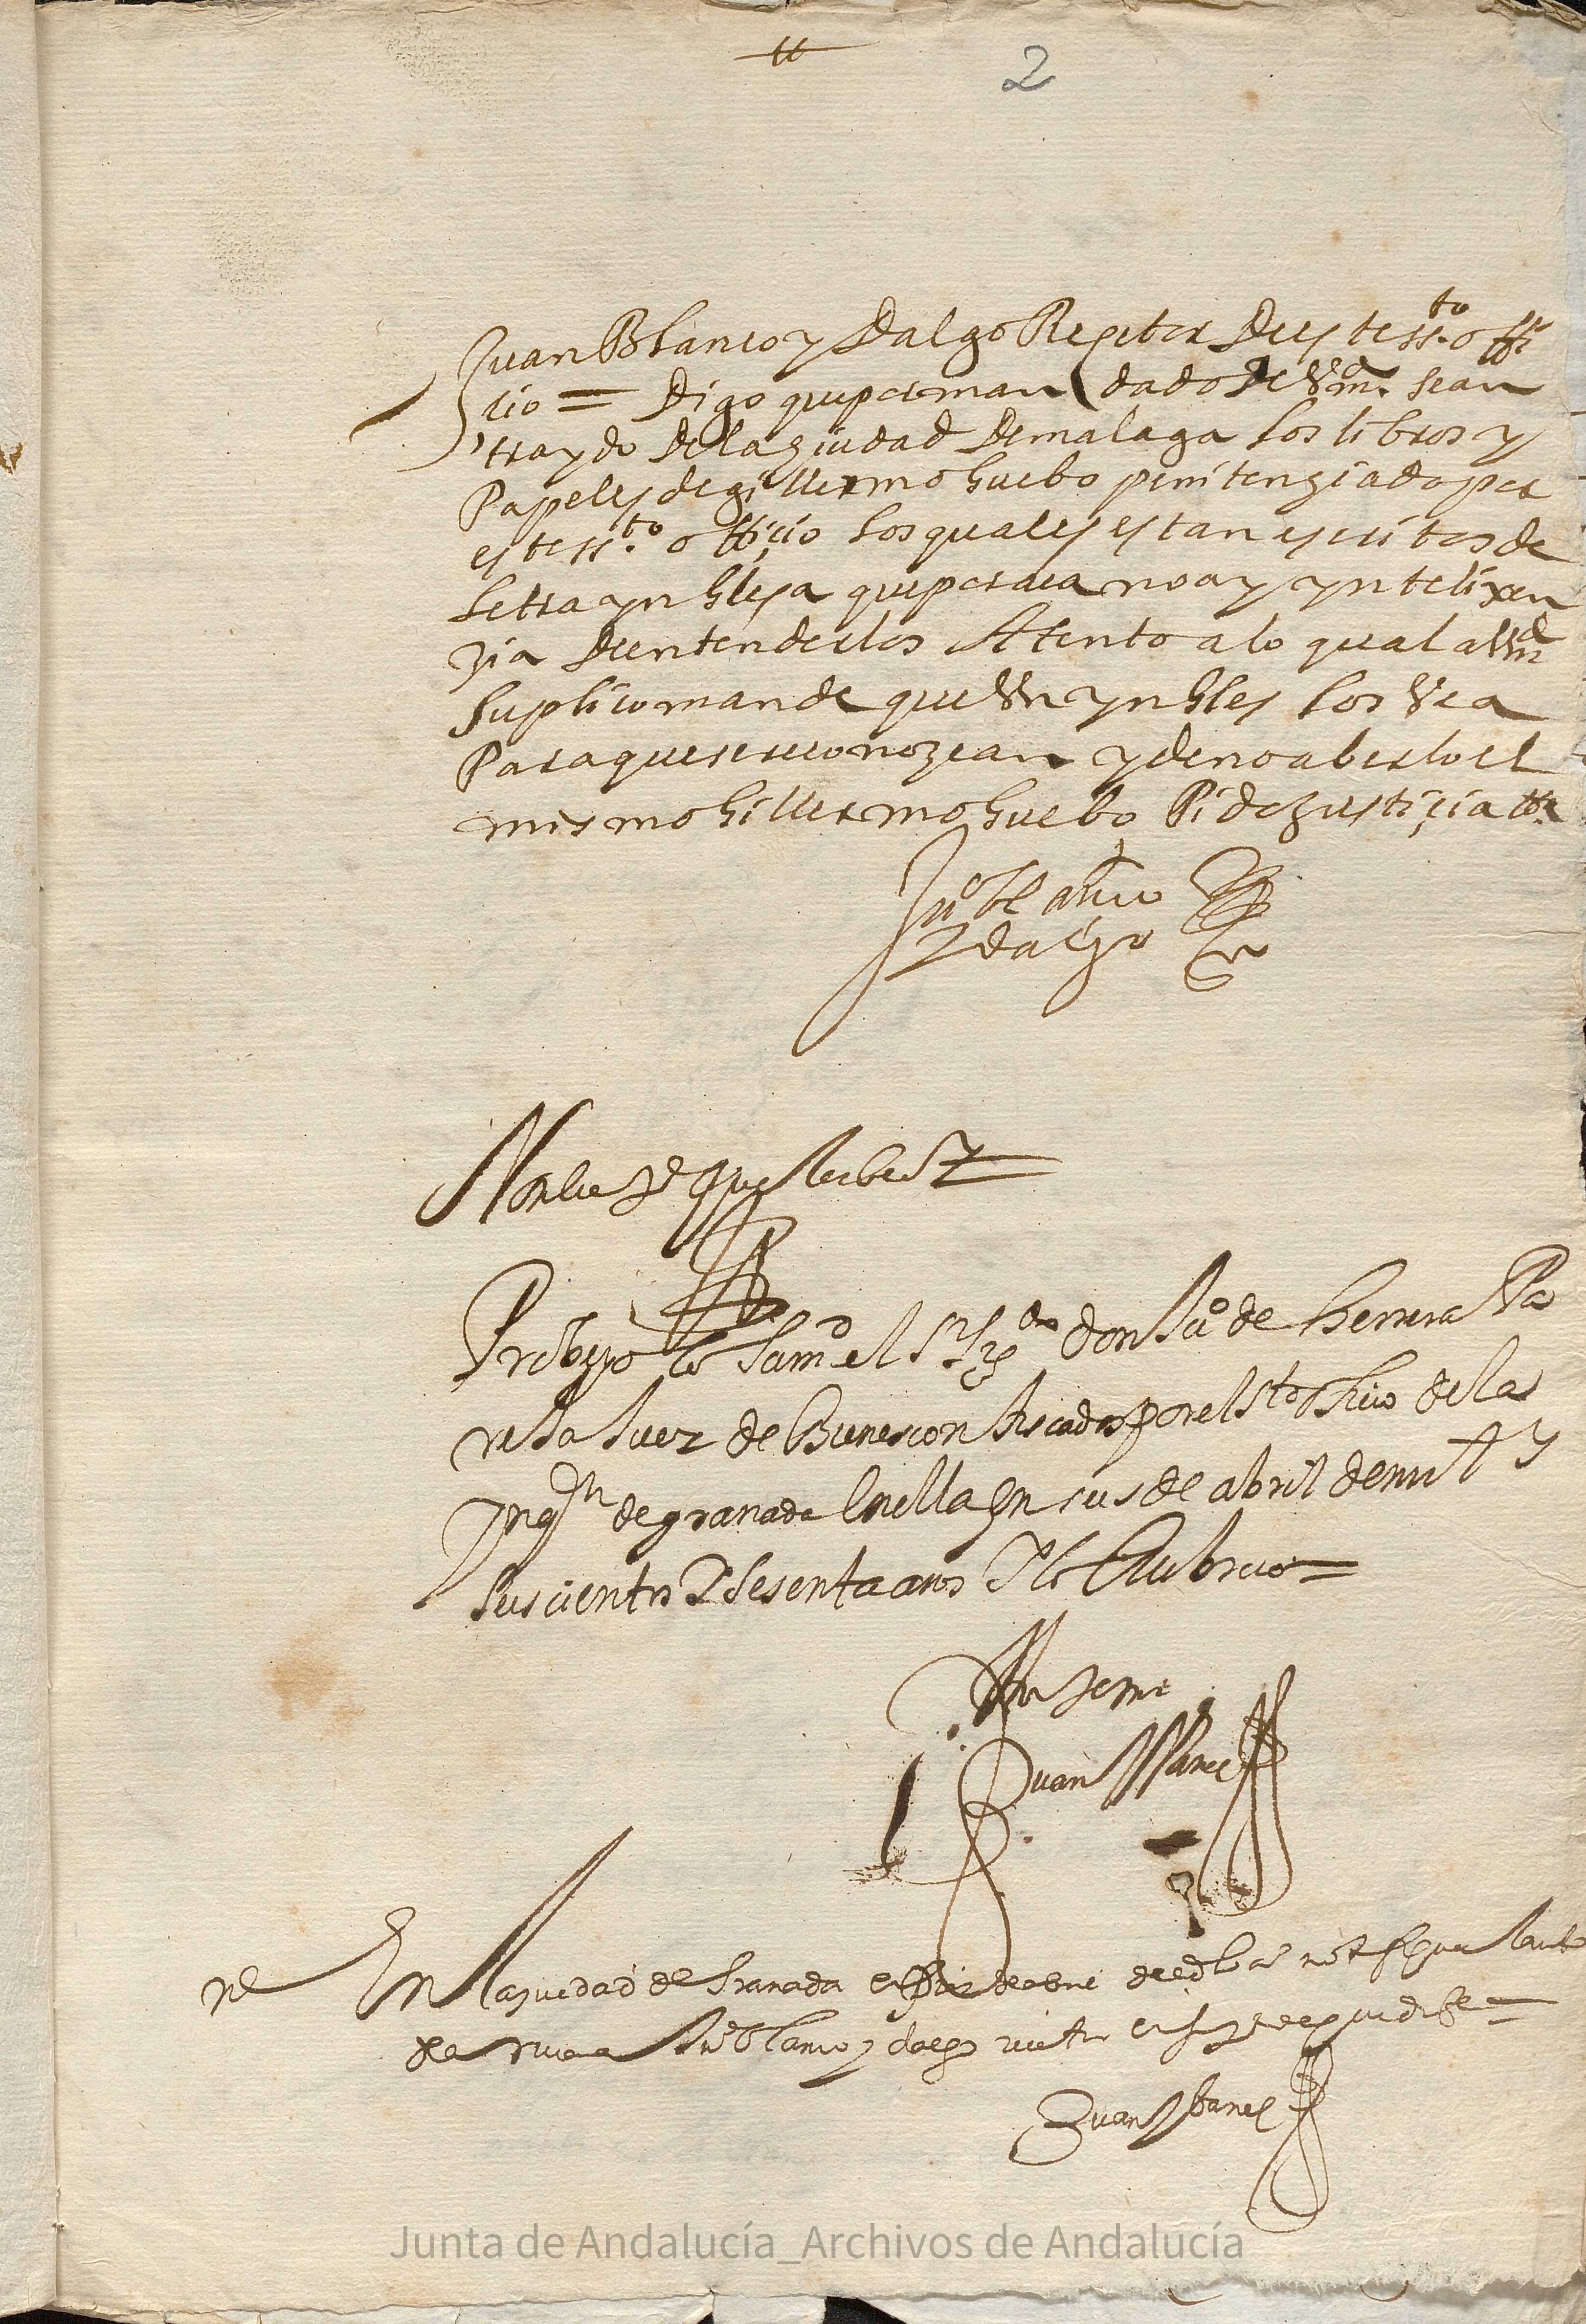 2
Juan Blanco y Dalgo Reçetor Deeste ss.to offi
cio = Digo que por man dado de Vmd. sean
traydo de la ziudad de malaga los libros y
Papeles de gillermo huebo penitenziado por
este ss.to officio los quales estan escritos de
letra ynglesa que por aca no ay ynteligen
zia de entenderlos Atento a lo qual a Vmd
suplico mande que Un yngles los Vea
Para que se reconozcan y de no aberlo el
mismo gillermo huebo Pido justiçia etta
Juº blanco
ydalgo
Probeyo lo Sussº el Sr Lizdo don Juº de herrera Pa
reja Juez de Bienes confiscados por el Sto Ofiçio de la
ynqon de granada En ella En seis de abril de mil y
seis cientos y sesenta años Y lo Rubrico =
Ante mi
Juan Ybañez
En la ziudad de Granada en de abril de el dho año notifique el auto
de suso a Juº blanco ydalgo
Juan Ybañez
Junta de Andalucía_Archivos de Andalucía